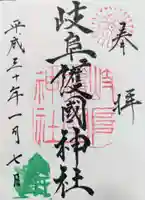 奉拝
岐阜護國神社
平成三十年一月七日